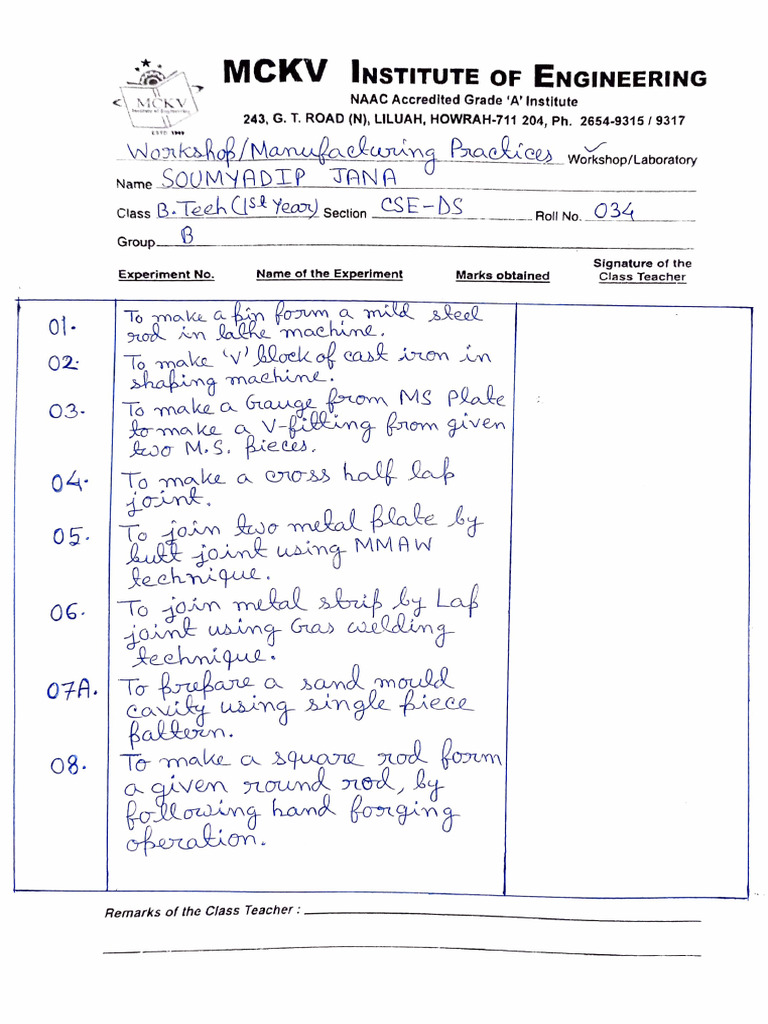 MCKV
Institute of Engineering
ESTD 1999
MCKV INSTITUTE OF ENGINEERING
NAAC Accredited Grade 'A' Institute
243, G. T. ROAD (N), LILUAH, HOWRAH-711 204, Ph. 2654-9315 / 9317
Workshop/Manufacturing Practices Workshop/Laboratory
Name SOUMYADIP JANA
Class B.Tech (1st Year) Section CSE-DS Roll No. 034
Group B
Experiment No. Name of the Experiment Marks obtained Signature of the Class Teacher
01. To make a pin form a mild steel
rod in lathe machine.
02. To make 'V' block of cast iron in
shaping machine.
03. To make a Gauge from MS Plate
to make a V-fitting from given
two M.S. pieces.
04. To make a cross half lap
joint.
05. To join two metal plate by
butt joint using MMAW
technique.
06. To join metal strip by Lap
joint using Gas welding
technique.
07A. To prepare a sand mould
cavity using single piece
pattern.
08. To make a square rod form
a given round rod, by
following hand forging
operation.
Remarks of the Class Teacher :